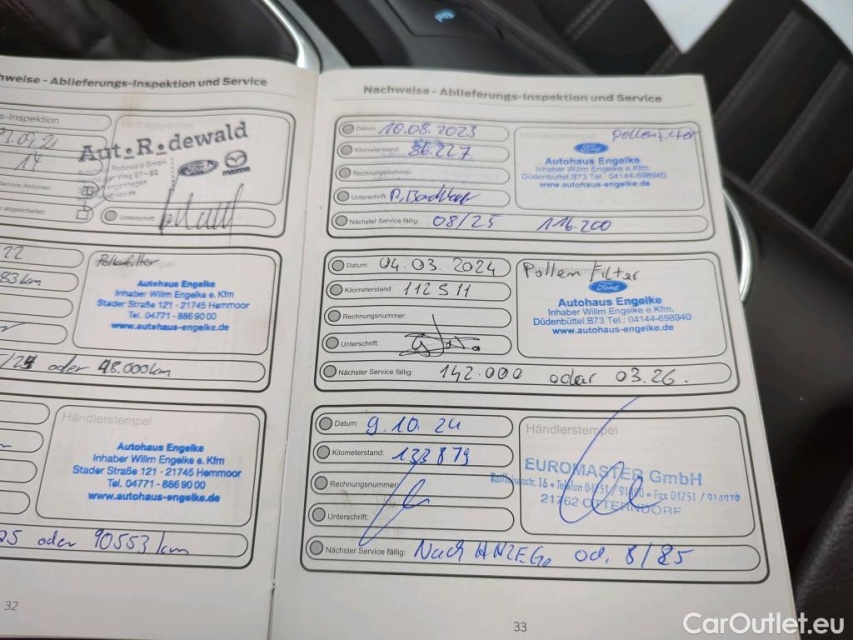 hweise - Ablieferungs-Inspektion und Service
s-Inspektion
14
Aut•R•dewald
Ford mazda
Unterschrift:
22
Pollenfilter
83 km
Autohaus Engelke
Inhaber Willm Engelke e. Kfm
Stader Straße 121 - 21745 Hemmoor
Tel. 04771 - 886 90 00
www.autohaus-engelke.de
/24 oder 48.000km
Händlerstempel
Autohaus Engelke
Inhaber Willm Engelke e. Kfm
Stader Straße 121 - 21745 Hemmoor
Tel. 04771 - 886 90 00
www.autohaus-engelke.de
25 oder 90553 km
32
Nachweise - Ablieferungs-Inspektion und Service
Datum: 10.08.2023
Kilometerstand: 86.227
Rechnungsnummer:
Unterschrift:
Händlerstempel
Pollenfilter
Ford
Autohaus Engelke
Inhaber Willm Engelke e.Kfm.
Düdenbüttel.B73 Tel.: 04144-698940
www.autohaus-engelke.de
Nächster Service fällig: 08/25 116.200
Datum: 04.03.2024
Kilometerstand: 112511
Rechnungsnummer:
Unterschrift:
Pollen Filter
Ford
Autohaus Engelke
Inhaber Willm Engelke e.Kfm.
Düdenbüttel.B73 Tel.: 04144-698940
www.autohaus-engelke.de
Nächster Service fällig: 142.000 oder 03.26.
Datum: 9.10.24
Kilometerstand: 133879
Rechnungsnummer:
Unterschrift:
Händlerstempel
EUROMASTER GmbH
16 • Telefon • Fax 04751 / 914979
21762 OTTERNDORF
Nächster Service fällig: Nach ANZEGe od. 8/25
33
CarOutlet.eu